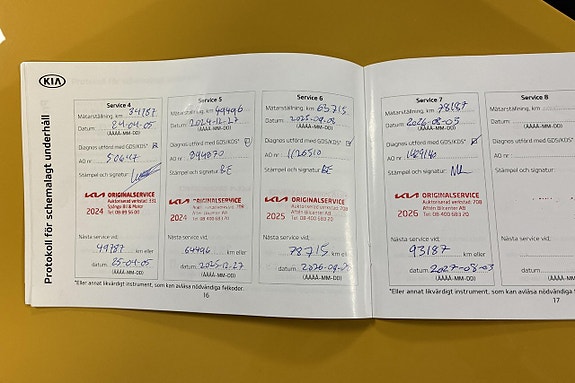 KIA
Protokoll för schemalagt underhåll
Service 4
Mätarställning, km 34787
Datum 24-04-05
(ÅÅÅÅ-MM-DD)
Diagnos utförd med GDS/KDS*
AO nr 50647
Stämpel och signatur
KIA ORIGINALSERVICE
Auktoriserad verkstad: 331
2024
Nästa service vid,
49787 km eller
datum 25-04-05
(ÅÅÅÅ-MM-DD)
Service 5
Mätarställning, km 49496
Datum 2024-12-27
(ÅÅÅÅ-MM-DD)
Diagnos utförd med GDS/KDS*
AO nr 894070
Stämpel och signatur BE
KIA ORIGINALSERVICE
Auktoriserad verkstad: 708
Atten Bilcenter AB
Tel: 08 400 683 20
2024
Nästa service vid,
64496 km eller
datum 2025-12-27
(ÅÅÅÅ-MM-DD)
Service 6
Mätarställning, km 63715
Datum 2025-09-08
(ÅÅÅÅ-MM-DD)
Diagnos utförd med GDS/KDS*
AO nr 1126510
Stämpel och signatur BE
KIA ORIGINALSERVICE
Auktoriserad verkstad: 708
Atten Bilcenter AB
Tel: 08 400 683 20
2025
Nästa service vid,
78715 km eller
datum 2026-09-
(ÅÅÅÅ-MM-DD)
*Eller annat likvärdigt instrument, som kan avläsa nödvändiga felkoder.
16
Service 7
Mätarställning, km 78187
Datum 2026-08-05
(ÅÅÅÅ-MM-DD)
Diagnos utförd med GDS/KDS*
AO nr
Stämpel och signatur
KIA ORIGINALSERVICE
Auktoriserad verkstad: 708
Atten Bilcenter AB
Tel: 08 400 683 20
2026
Nästa service vid,
93187 km eller
datum 2027-08-03
(ÅÅÅÅ-MM-DD)
Service 8
Mätarställning, km
Datum
Diagnos utförd med GDS/KDS*
AO nr
Stämpel och signatur
Nästa service vid,
datum
*Eller annat likvärdigt instrument, som kan avläsa nödvändiga
17